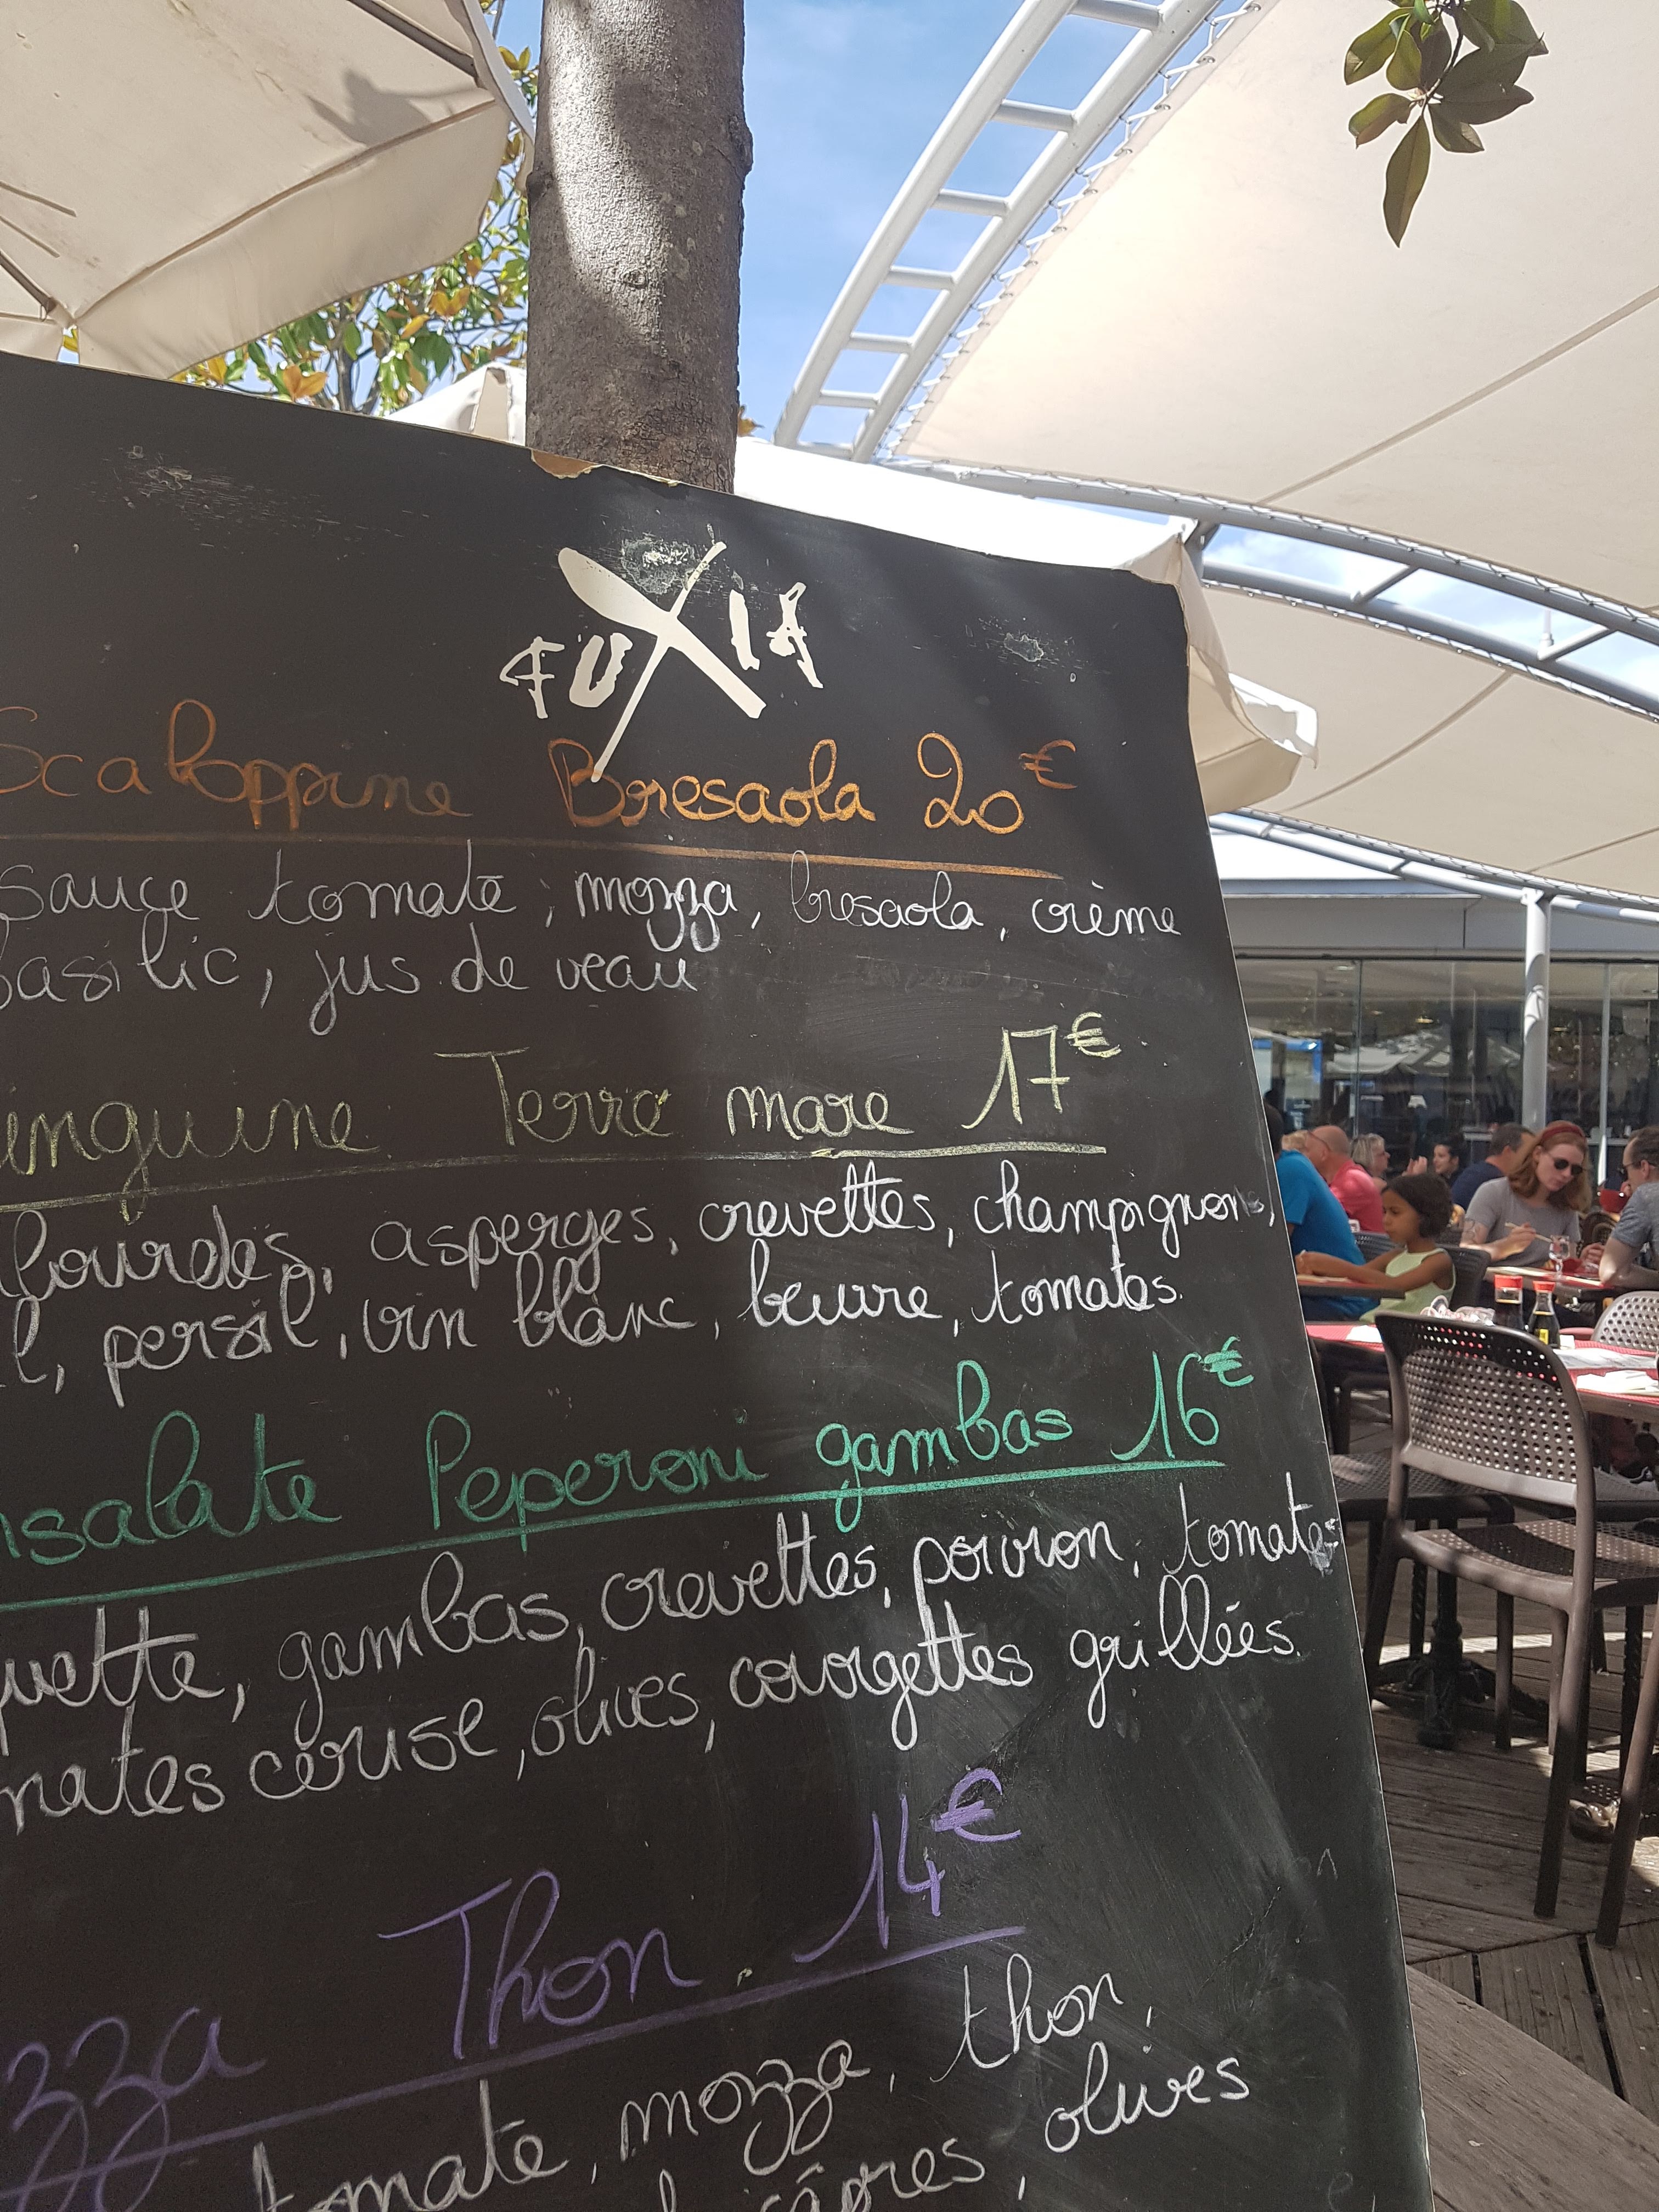 FUXIA
Scaloppine Bresaola 20€
Sauce tomate, mozza, bresaola, crème
basilic, jus de veau
inguine Terra mare 17€
lourdes, asperges, crevettes, champignons,
l, persil, vin blanc, beurre, tomates.
nsalate Peperoni gambas 16€
quette, gambas, crevettes, poivron, tomates
mates cerise, olives, courgettes grillées.
zza Thon 14€
tomate, mozza, thon,
câpres, olives